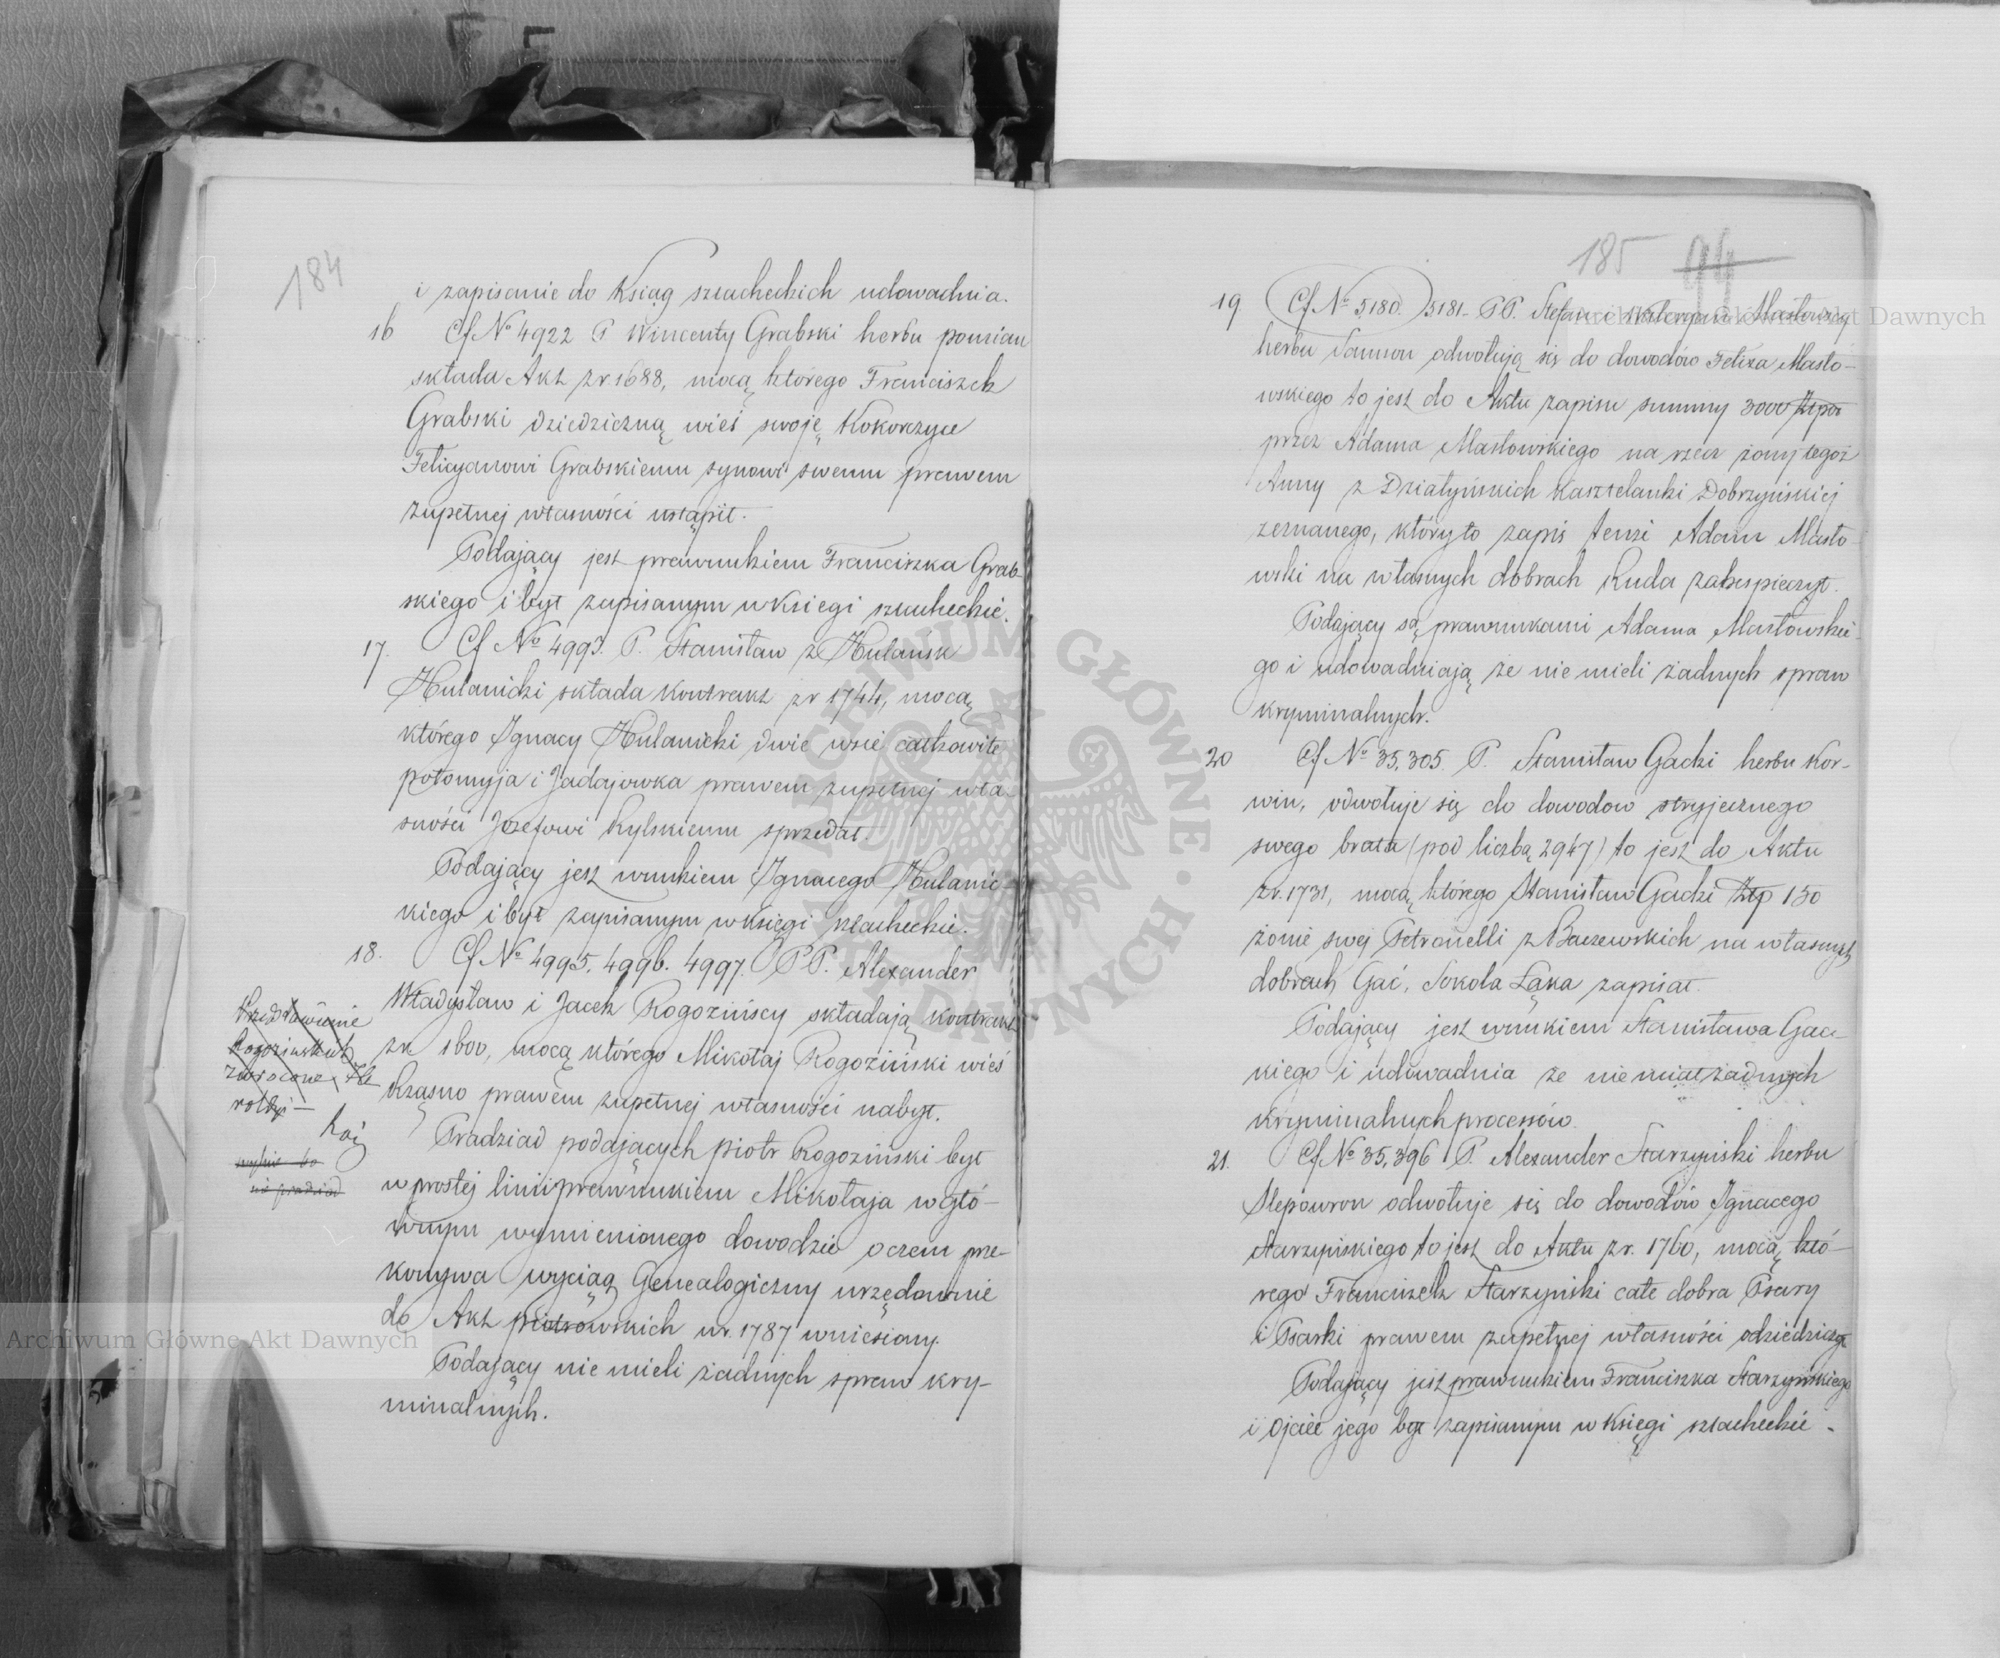 184
i zapisanie do Ksiąg szlacheckich udowadnia.
16 Cf No 4922 P Wincenty Grabski herbu pomian
składa Akt zr. 1688, mocą którego Franciszek
Grabski dziedziczną wieś swoję Kokorzyce
Felicyanowi Grabskiemu synowi swemu prawem
zupełnej własności ustąpił.
Podający jest prawnukiem Franciszka Grab-
skiego i był zapisanym w Księgi szlacheckie.
17. Cf No 4993. P. Stanisław z Hulansk
Hulanicki składa kontrakt zr 1744, mocą
którego Ignacy Hulanicki dwie wsie całkowite
połomyja i Jadajowka prawem zupełnej wła-
sności Józefowi Rylskiemu sprzedał.
Podający jest wnukiem Ignacego Hulanic-
kiego i był zapisanym w księgi szlacheckie.
18. Cf No 4995. 4996. 4997. PP. Alexander
Władysław i Jacek Rogozińscy składają kontrakt
zr 1600, mocą którego Mikołaj Rogoziński wieś
Rząsno prawem zupełnej własności nabył.
Pradziad podających piotr Rogoziński był
w prostej linii prawnukiem Mikołaja w głó-
wnym wymienionego dowodzie o czem prze-
konywa wyciąg Genealogiczny urzędownie
do Akt piotrowskich wr. 1787 wniesiony.
Podający nie mieli żadnych spraw kry-
minalnych.
185 94
19 Cf No 5180. 5181. PP. Stefan i Maslowscy
herbu Samson odwołują się do dowodów Felixa Masło-
wskiego to jest do Aktu zapisu summy 3000 Złpol
przez Adama Masłowskiego na rzecz żony tegoż
Anny z Działyńskich Kasztelanki Dobrzyńskiej
zeznanego, który to zapis tenże Adam Masło-
wski na własnych dobrach Ruda zabespieczył.
Podający są prawnukami Adama Masłowskie-
go i udowadniają że nie mieli żadnych spraw
kryminalnych.
20 Cf No 35,305. P. Stanisław Gacki herbu Kor-
win, odwołuje się do dowodow stryjecznego
swego brata (pod liczbą 2947) to jest do Aktu
zr. 1731, mocą którego Stanisław Gacki Złp 150
żonie swej Petronelli z Baczewskich na własnych
dobrach Gać, Sokola Łąka zapisał.
Podający jest wnukiem Stanisława Gac-
kiego i udowadnia że nie miał żadnych
kryminalnych processów.
21. Cf No 35,396 P. Alexander Starzyński herbu
Slepowron odwołuje się do dowodów Ignacego
Starzyńskiego to jest do Aktu zr. 1760, mocą któ-
rego Franciszek Starzyński całe dobra Psary
i Psarki prawem zupełnej własności odziedziczył
Podający jest prawnukiem Franciszka Starzyńskiego
i Ojciec jego był zapisanym w Księgi szlacheckie.